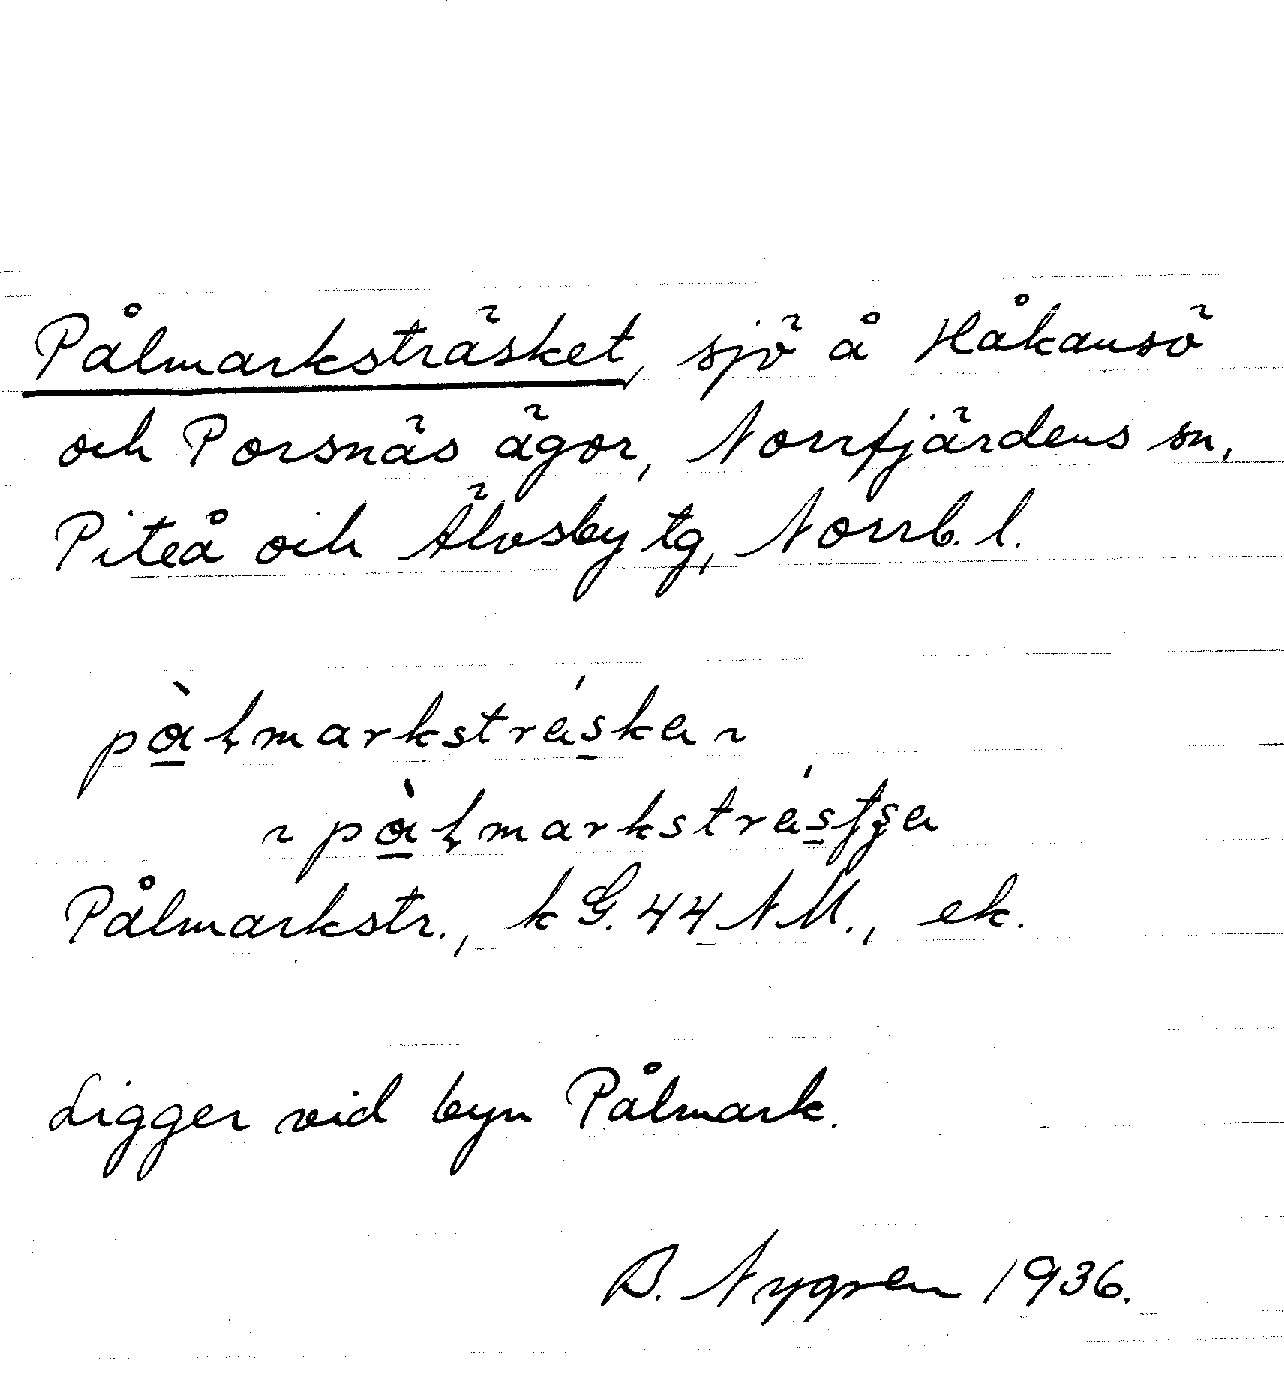 Pålmarksträsket, sjö å Håkansö
och Porsnäs ägor, Norrfjärdens sn,
Piteå och Älvsby tg, Norrb. l.
på̀ɬmarkstráska ~
~ på̀ɬmarkstrástʂa
Pålmarkstr., k G. 44 NM., ek.
Ligger vid byn Pålmark.
B. Nygren 1936.